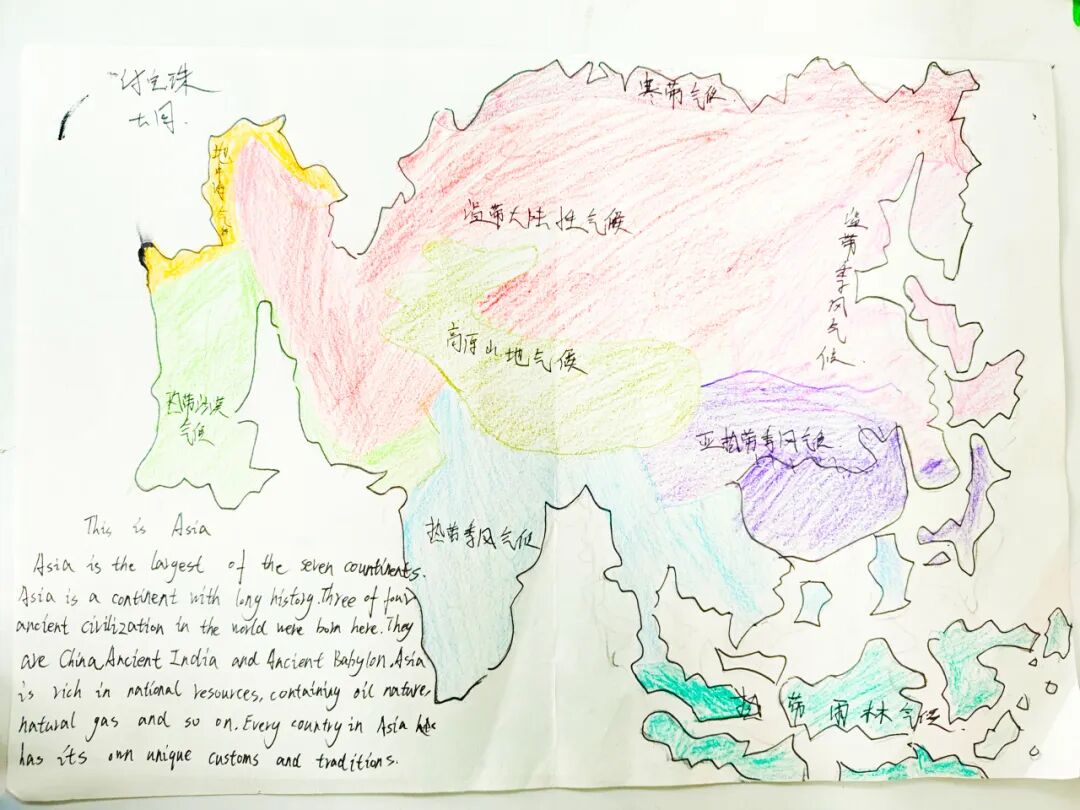 七(1)
寒带气候
地中海气候
温带大陆性气候
温带季风气候
高原山地气候
热带沙漠气候
亚热带季风气候
热带季风气候
热带雨林气候
This is Asia
Asia is the largest of the seven countinents.
Asia is a continent with long history.Three of four
ancient civilization in the world were born here.They
are China,Ancient India and Ancient Babylon.Asia
is rich in national resources, containing oil nature,
natural gas and so on.Every country in Asia
has its own unique customs and traditions.